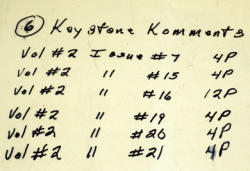 6 Keystone Komments
Vol #2 Issue #7 4P
Vol #2 " #15 4P
Vol #2 " #16 12P
Vol #2 " #19 4P
Vol #2 " #20 4P
Vol #2 " #21 4P